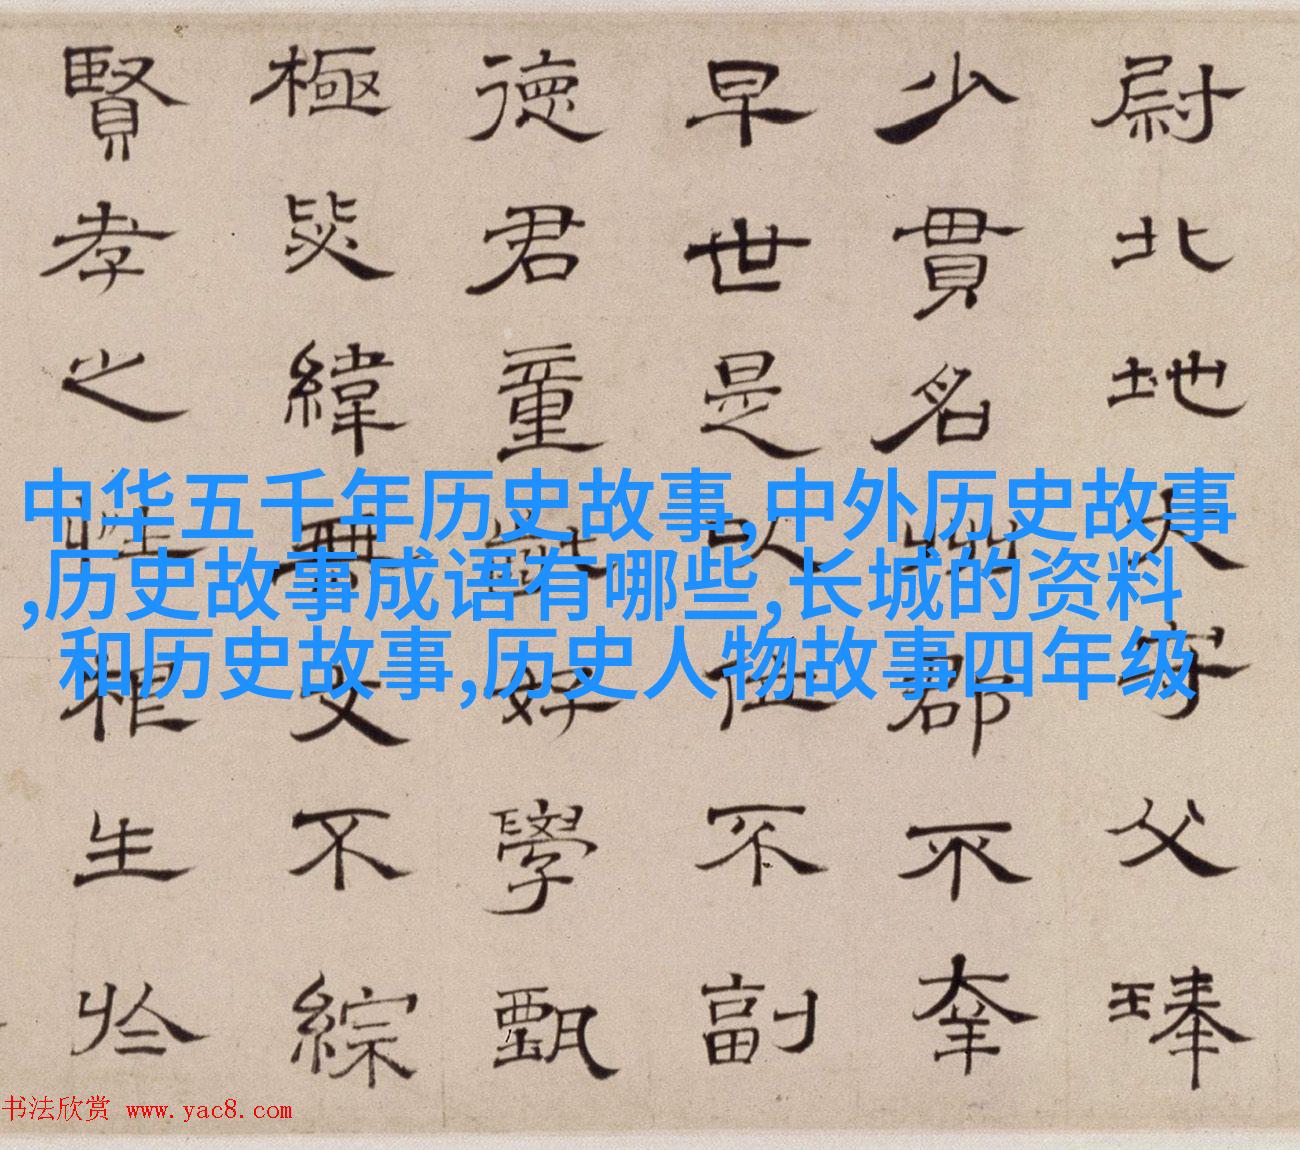 中华五千年历史故事,中外历史故事
,历史故事成语有哪些,长城的资料
和历史故事,历史人物故事四年级
尉北地大守父琫
少貫名州郡不幸
早世是以位不副
德君童齔好學甄
極毖緯無文不綜
賢孝之性根生於
书法欣赏 www.yac8.com